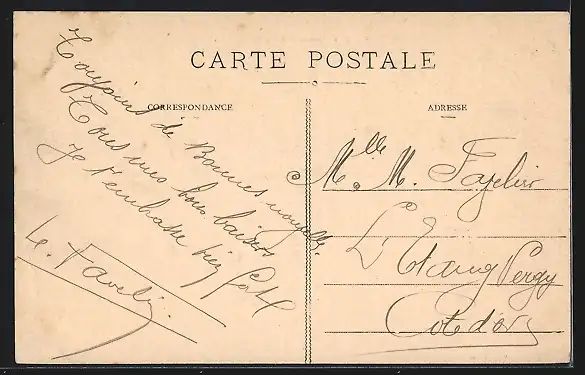 CARTE POSTALE
CORRESPONDANCE
ADRESSE
Toujours de Bonnes nouvelles.
Tous mes bons baisers
Je t'embrasse bien fort
Mlle M.
L'Etang Vergy
Cote d'or